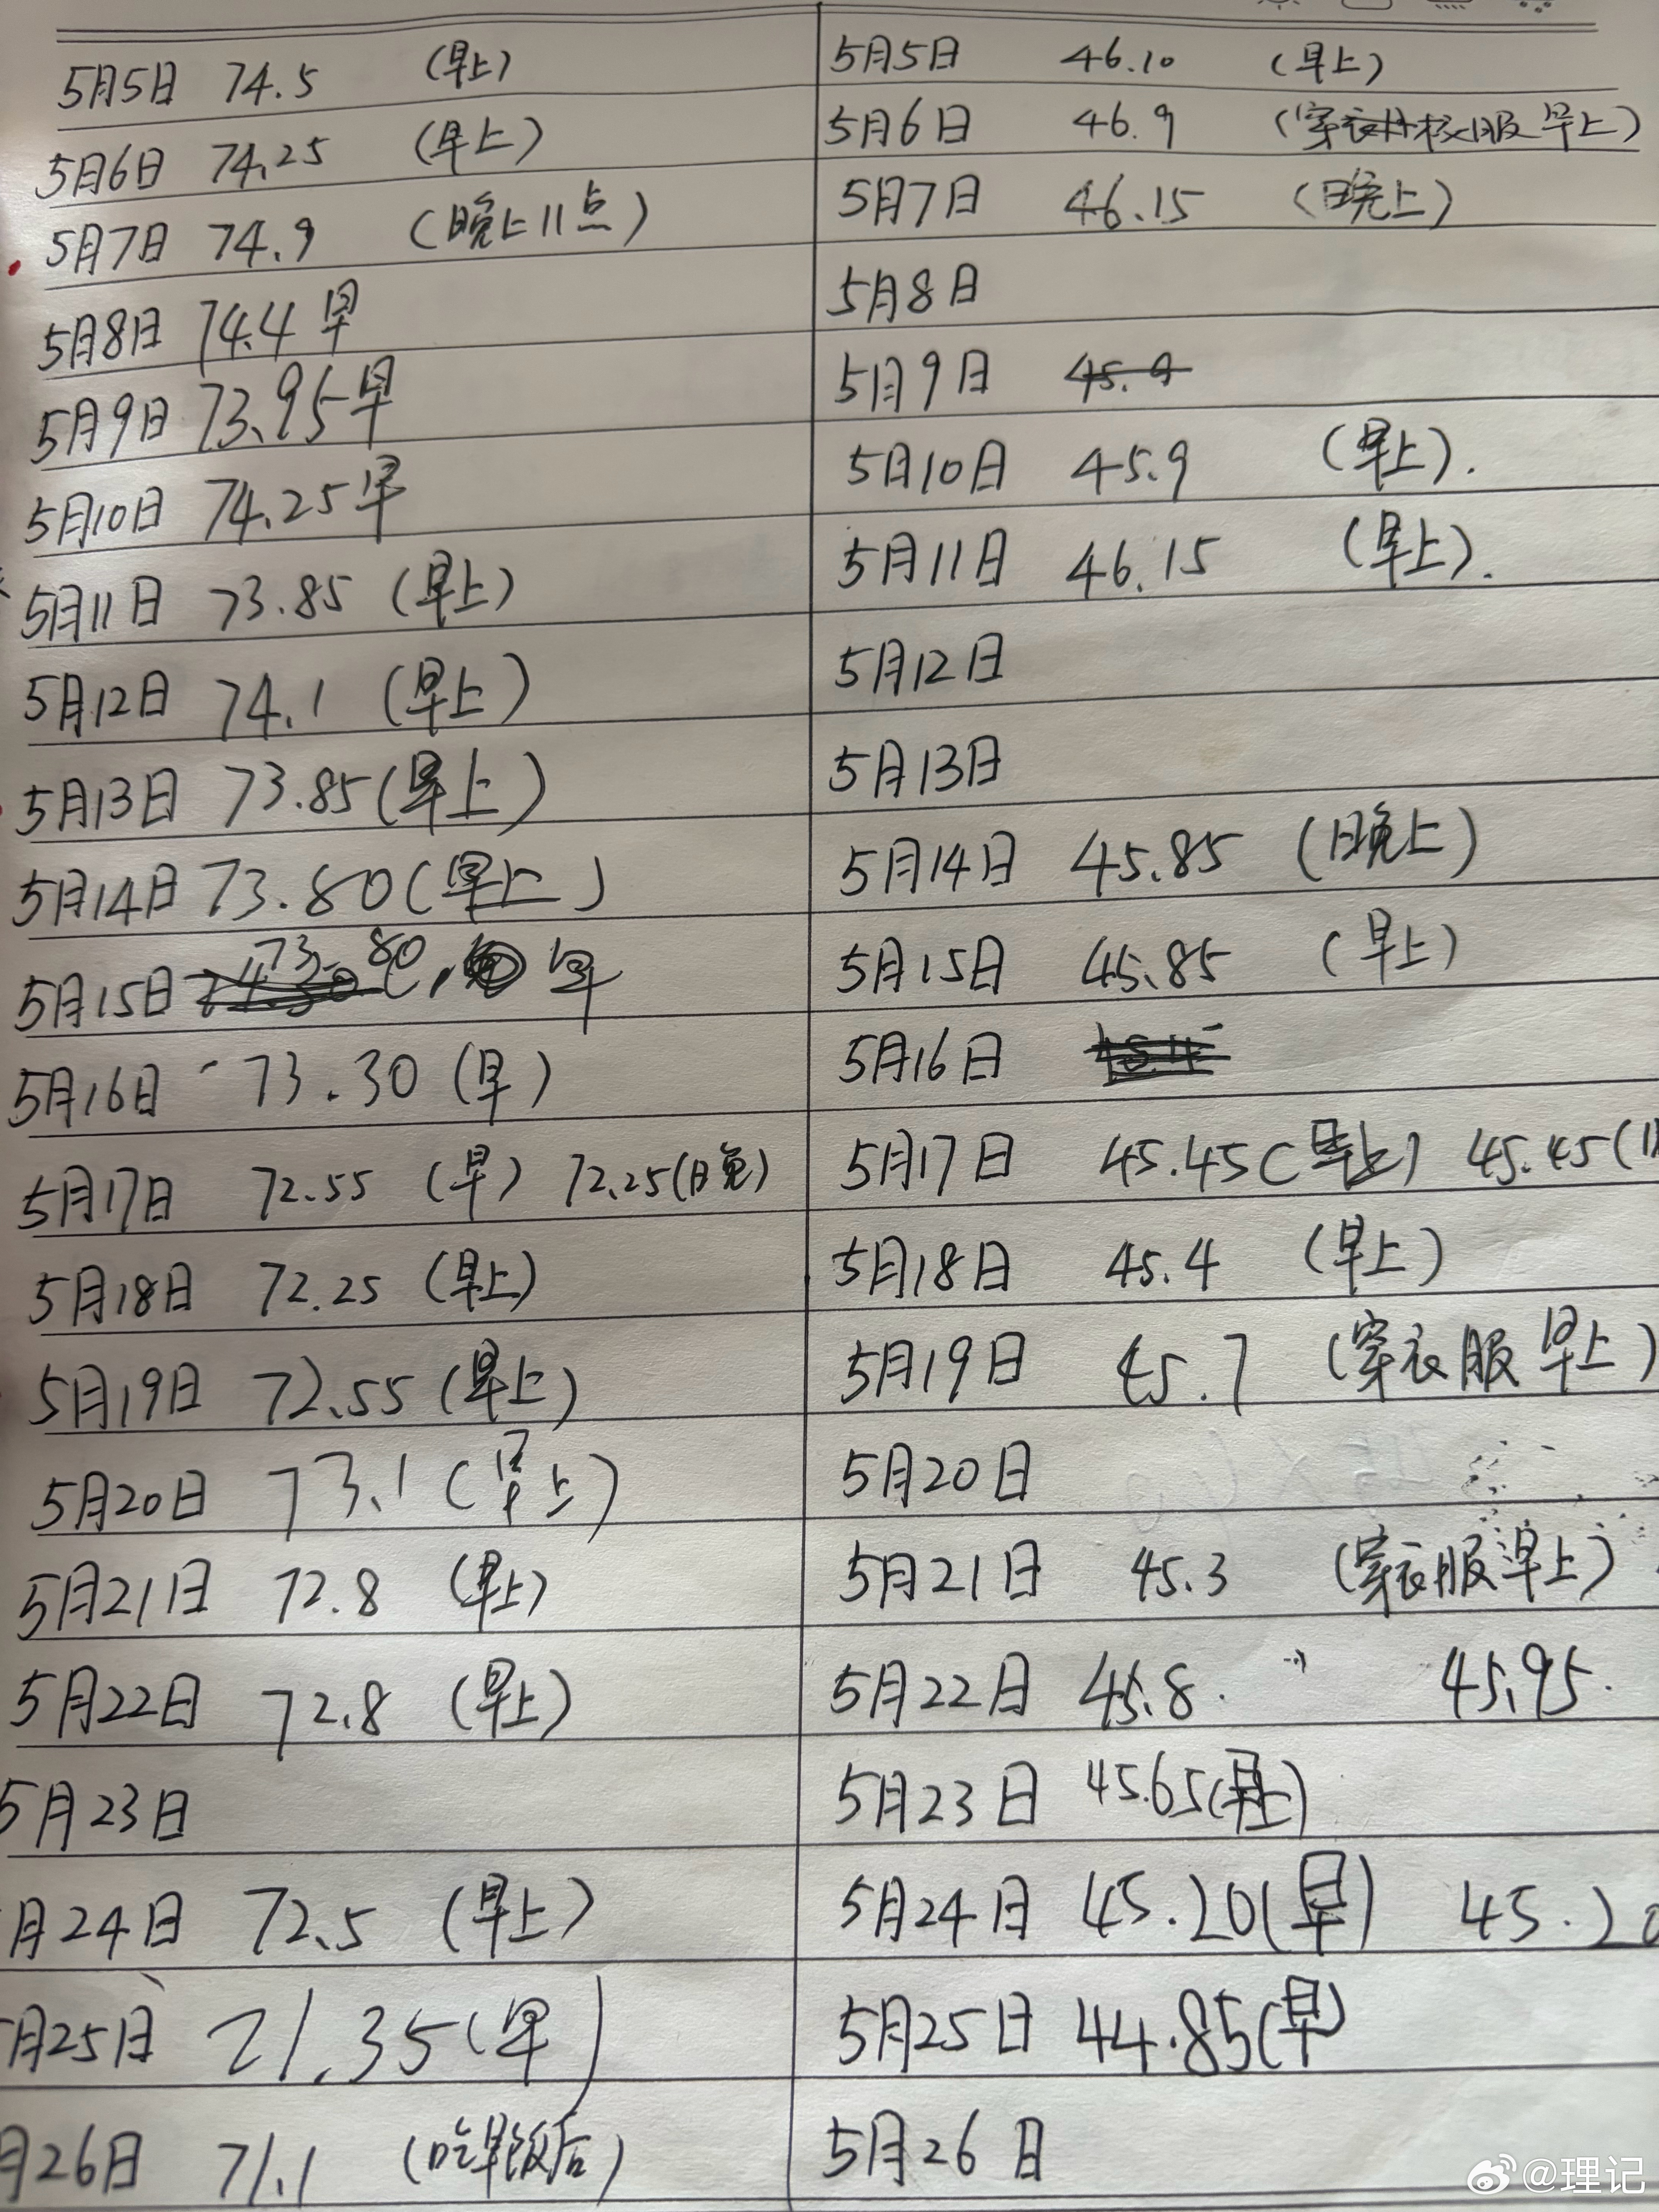 5月5日 74.5 (早上)
5月6日 74.25 (早上)
5月7日 74.9 (晚上11点)
5月8日 74.4 早
5月9日 73.95 早
5月10日 74.25 早
5月11日 73.85 (早上)
5月12日 74.1 (早上)
5月13日 73.85 (早上)
5月14日 73.80 (早上)
5月15日 73.80 早
5月16日 73.30 (早)
5月17日 72.55 (早) 72.25 (晚)
5月18日 72.25 (早上)
5月19日 72.55 (早上)
5月20日 73.1 (早上)
5月21日 72.8 (早上)
5月22日 72.8 (早上)
5月23日
月24日 72.5 (早上)
月25日 71.35 (早)
月26日 71.1 (吃早饭后)
5月5日 46.10 (早上)
5月6日 46.9 (穿衣服早上)
5月7日 46.15 (晚上)
5月8日
5月9日 45.9
5月10日 45.9 (早上).
5月11日 46.15 (早上).
5月12日
5月13日
5月14日 45.85 (晚上)
5月15日 45.85 (早上)
5月16日
5月17日 45.45 (早上) 45.45 (
5月18日 45.4 (早上)
5月19日 45.7 (穿衣服早上)
5月20日
5月21日 45.3 (穿衣服早上)
5月22日 45.8. 45.95.
5月23日 45.65 (早上)
5月24日 45.20 (早) 45.20
5月25日 44.85 (早)
5月26日
@理记